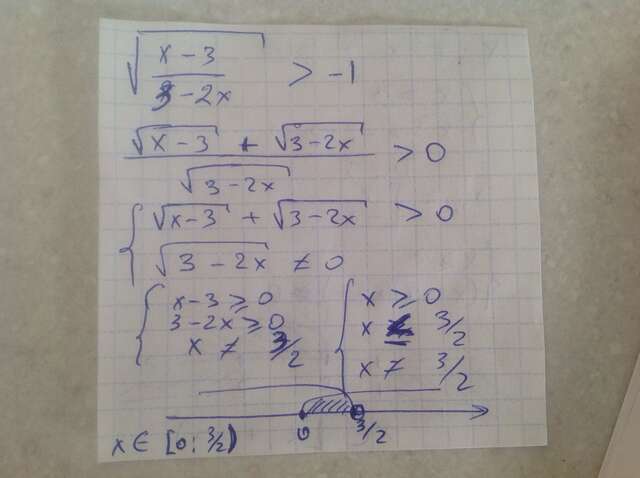 √((x - 3)/(3 - 2x)) > -1
(√(x - 3) + √(3 - 2x))/√(3 - 2x) > 0
{ √(x - 3) + √(3 - 2x) > 0
√(3 - 2x) ≠ 0
{ x - 3 ≥ 0
3 - 2x ≥ 0
x ≠ 3/2
{ x ≥ 0
x ≤ 3/2
x ≠ 3/2
0 3/2
x ∈ [0; 3/2)